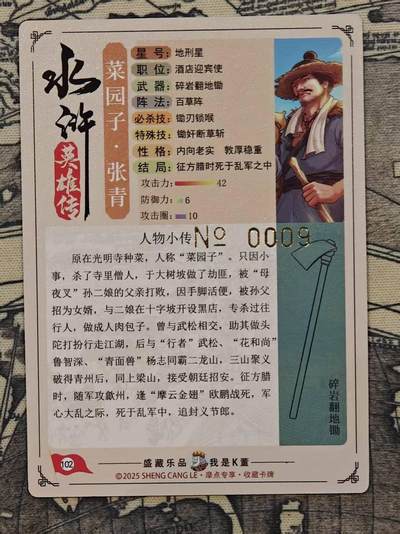 水浒
英雄传
菜园子·张青
星号：地刑星
职位：酒店迎宾使
武器：碎岩翻地锄
阵法：百草阵
必杀技：锄刃锁喉
特殊技：锄奸断草斩
性格：内向老实 敦厚稳重
结局：征方腊时死于乱军之中
攻击力： 42
防御力： 6
攻击圈： 10
人物小传 No 0009
原在光明寺种菜，人称“菜园子”。只因小
事，杀了寺里僧人，于大树坡做了劫匪，被“母
夜叉”孙二娘的父亲打败，因手脚活便，被孙父
招为女婿，与二娘在十字坡开设黑店，专杀过往
行人，做成人肉包子。曾与武松相交，助其做头
陀打扮行走江湖，后与“行者”武松、“花和尚”
鲁智深、“青面兽”杨志同霸二龙山，三山聚义
破得青州后，同上梁山，接受朝廷招安。征方腊
时，随军攻歙州，逢“摩云金翅”欧鹏战死，军
心大乱之际，死于乱军中，追封义节郎。
碎岩翻地锄
102
盛藏乐品 我是K董
©2025 SHENG CANG LE·摩点专享·收藏卡牌